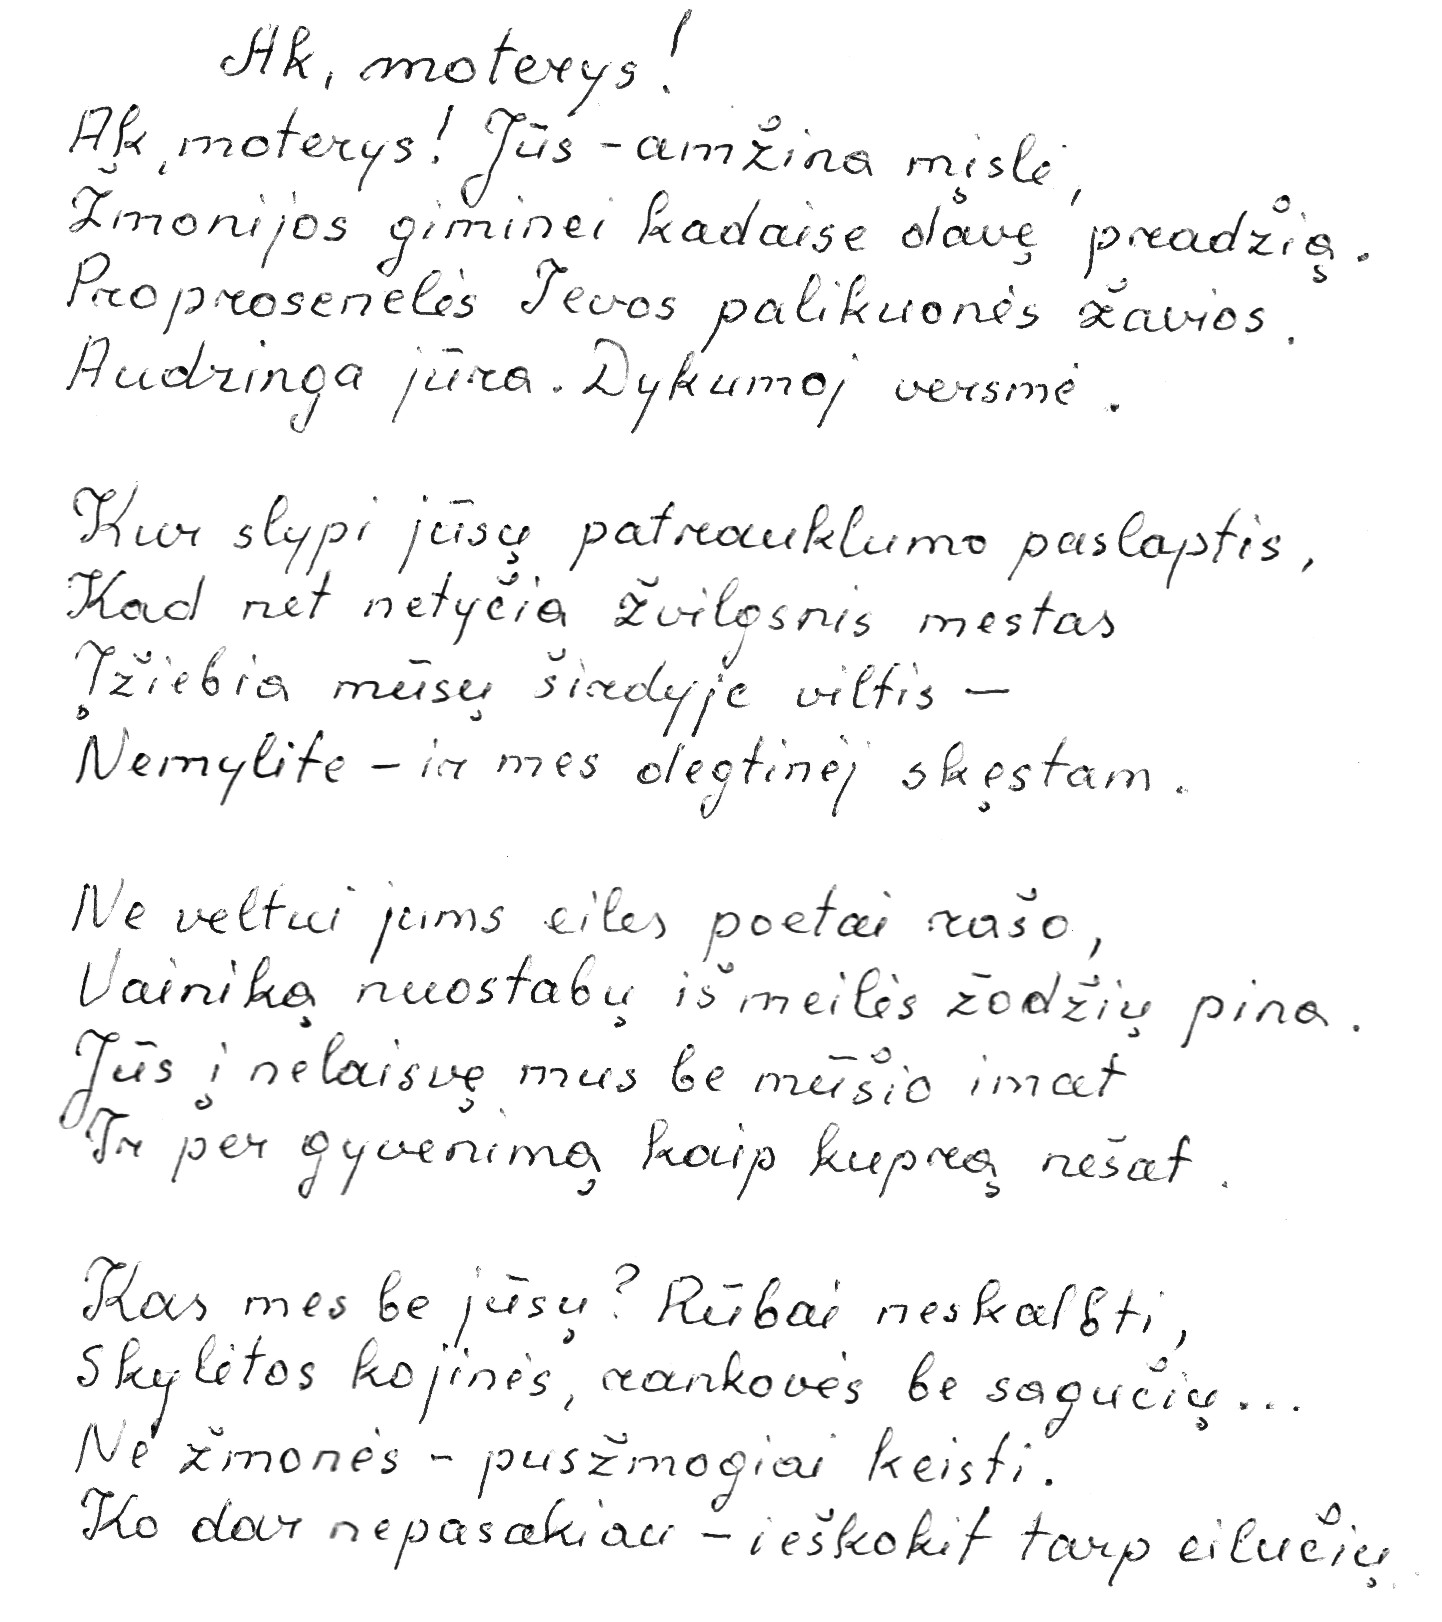 Ak, moterys!
Ak, moterys! Jūs - amžina mįslė,
Žmonijos giminei kadaise davę pradžią.
Proprosenelės Ievos palikuonės žavios.
Audringa jūra. Dykumoj versmė.
Kur slypi jūsų patrauklumo paslaptis,
Kad net netyčia žvilgsnis mestas
Įžiebia mūsų širdyje viltis –
Nemylite – ir mes degtinėj skęstam.
Ne veltui jums eiles poetai rašo,
Vainiką nuostabų iš meilės žodžių pina.
Jūs į nelaisvę mus be mūšio imat
Ir per gyvenimą kaip kuprą nešat.
Kas mes be jūsų? Rūbai neskalbti,
Skylėtos kojinės, rankovės be sagučių...
Ne žmonės - pusžmogiai keisti.
Ko dar nepasakiau – ieškokit tarp eilučių.